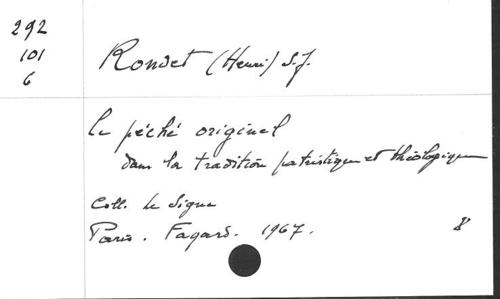 292
101
6
Rondet (Henri) S.J.
le péché originel
dans la tradition patristique et théologique
Coll. le Signe
Paris. Fayard. 1967.
8